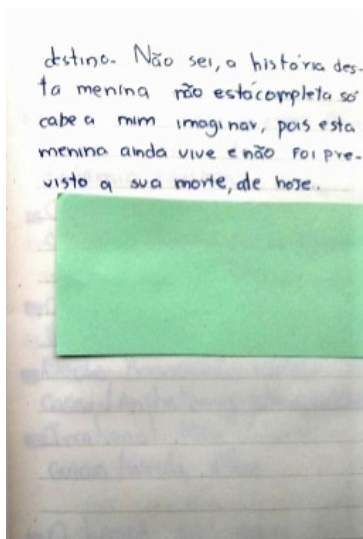 destino. Não sei, a história des-
ta menina não está completa só
cabe a mim imaginar, pois esta
menina ainda vive e não foi pre-
visto a sua morte, até hoje.